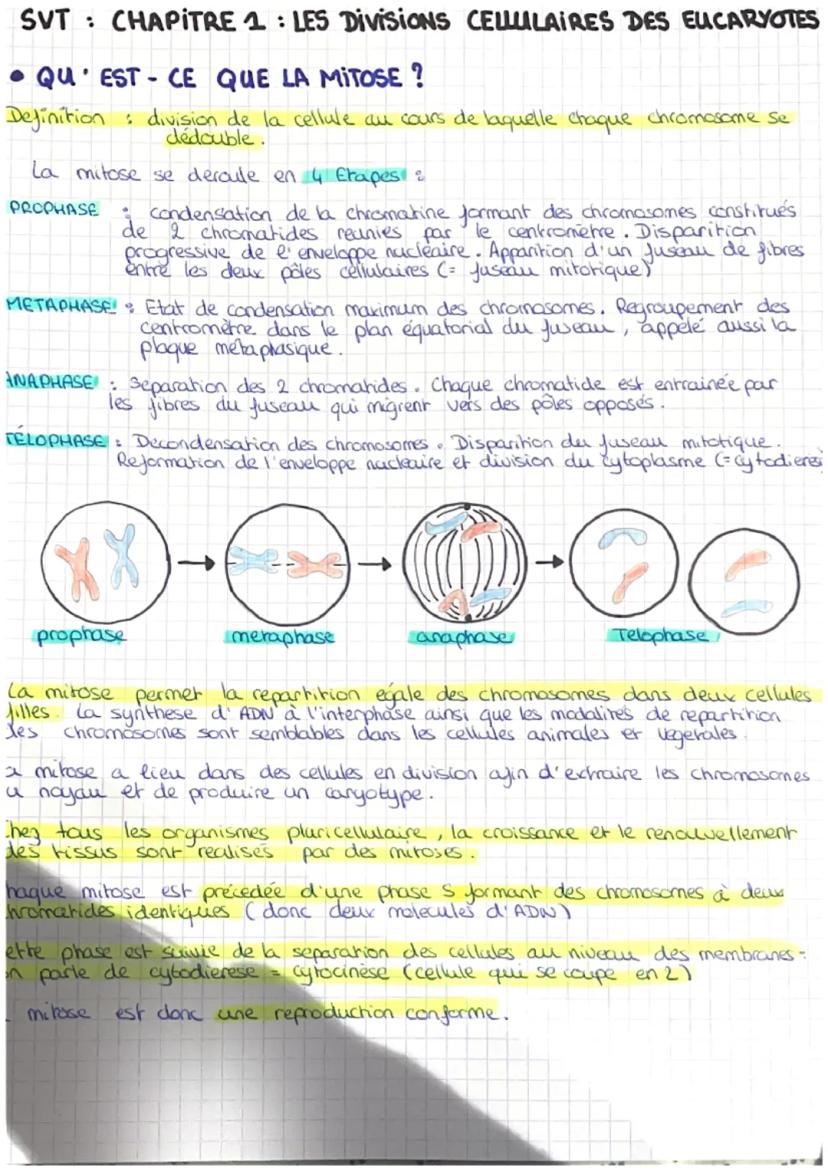 SVT : CHAPITRE 1 : LES DIVISIONS CELLULAIRES DES EUCARYOTES
• QU'EST-CE QUE LA MITOSE ?
Definition : division de la cellule au cours de laquelle chaque chromosome se
dédouble.
La mitose se déroule en 4 Etapes :
PROPHASE : condensation de la chromatine formant des chromosomes constitués
de 2 chromatides reunies par le centromètre. Disparition
progressive de l'enveloppe nucléaire. Apparition d'un fuseau de fibres
entre les deux pôles cellulaires (= fuseau mitotique)
METAPHASE : Etat de condensation maximum des chromosomes. Regroupement des
centromètre dans le plan équatorial du fuseau, appelé aussi la
plaque métaphasique.
ANAPHASE : Separation des 2 chromatides. Chaque chromatide est entrainée par
les fibres du fuseau qui migrent vers des pôles opposés.
TÉLOPHASE : Decondensation des chromosomes. Disparition du fuseau mitotique.
Reformation de l'enveloppe nucleaire et division du cytoplasme (=cytodieres
prophase metaphase anaphase Telophase
La mitose permet la repartition égale des chromosomes dans deux cellules
filles. La synthese d'ADN à l'interphase ainsi que les modalités de repartition
des chromosomes sont semblables dans les cellules animales et vegetales.
a mitose a lieu dans des cellules en division afin d'extraire les chromosomes
u noyau et de produire un caryotype.
Chez tous les organismes pluricellulaire, la croissance et le renouvellement
des tissus sont realisés par des mitoses.
haque mitose est précedée d'une phase S formant des chromosomes à deux
hromatides identiques (donc deux molecules d'ADN)
ette phase est suivie de la separation des cellules au niveau des membranes :
on parle de cytodierese = cytocinèse (cellule qui se coupe en 2)
mitose est donc une reproduction conforme.